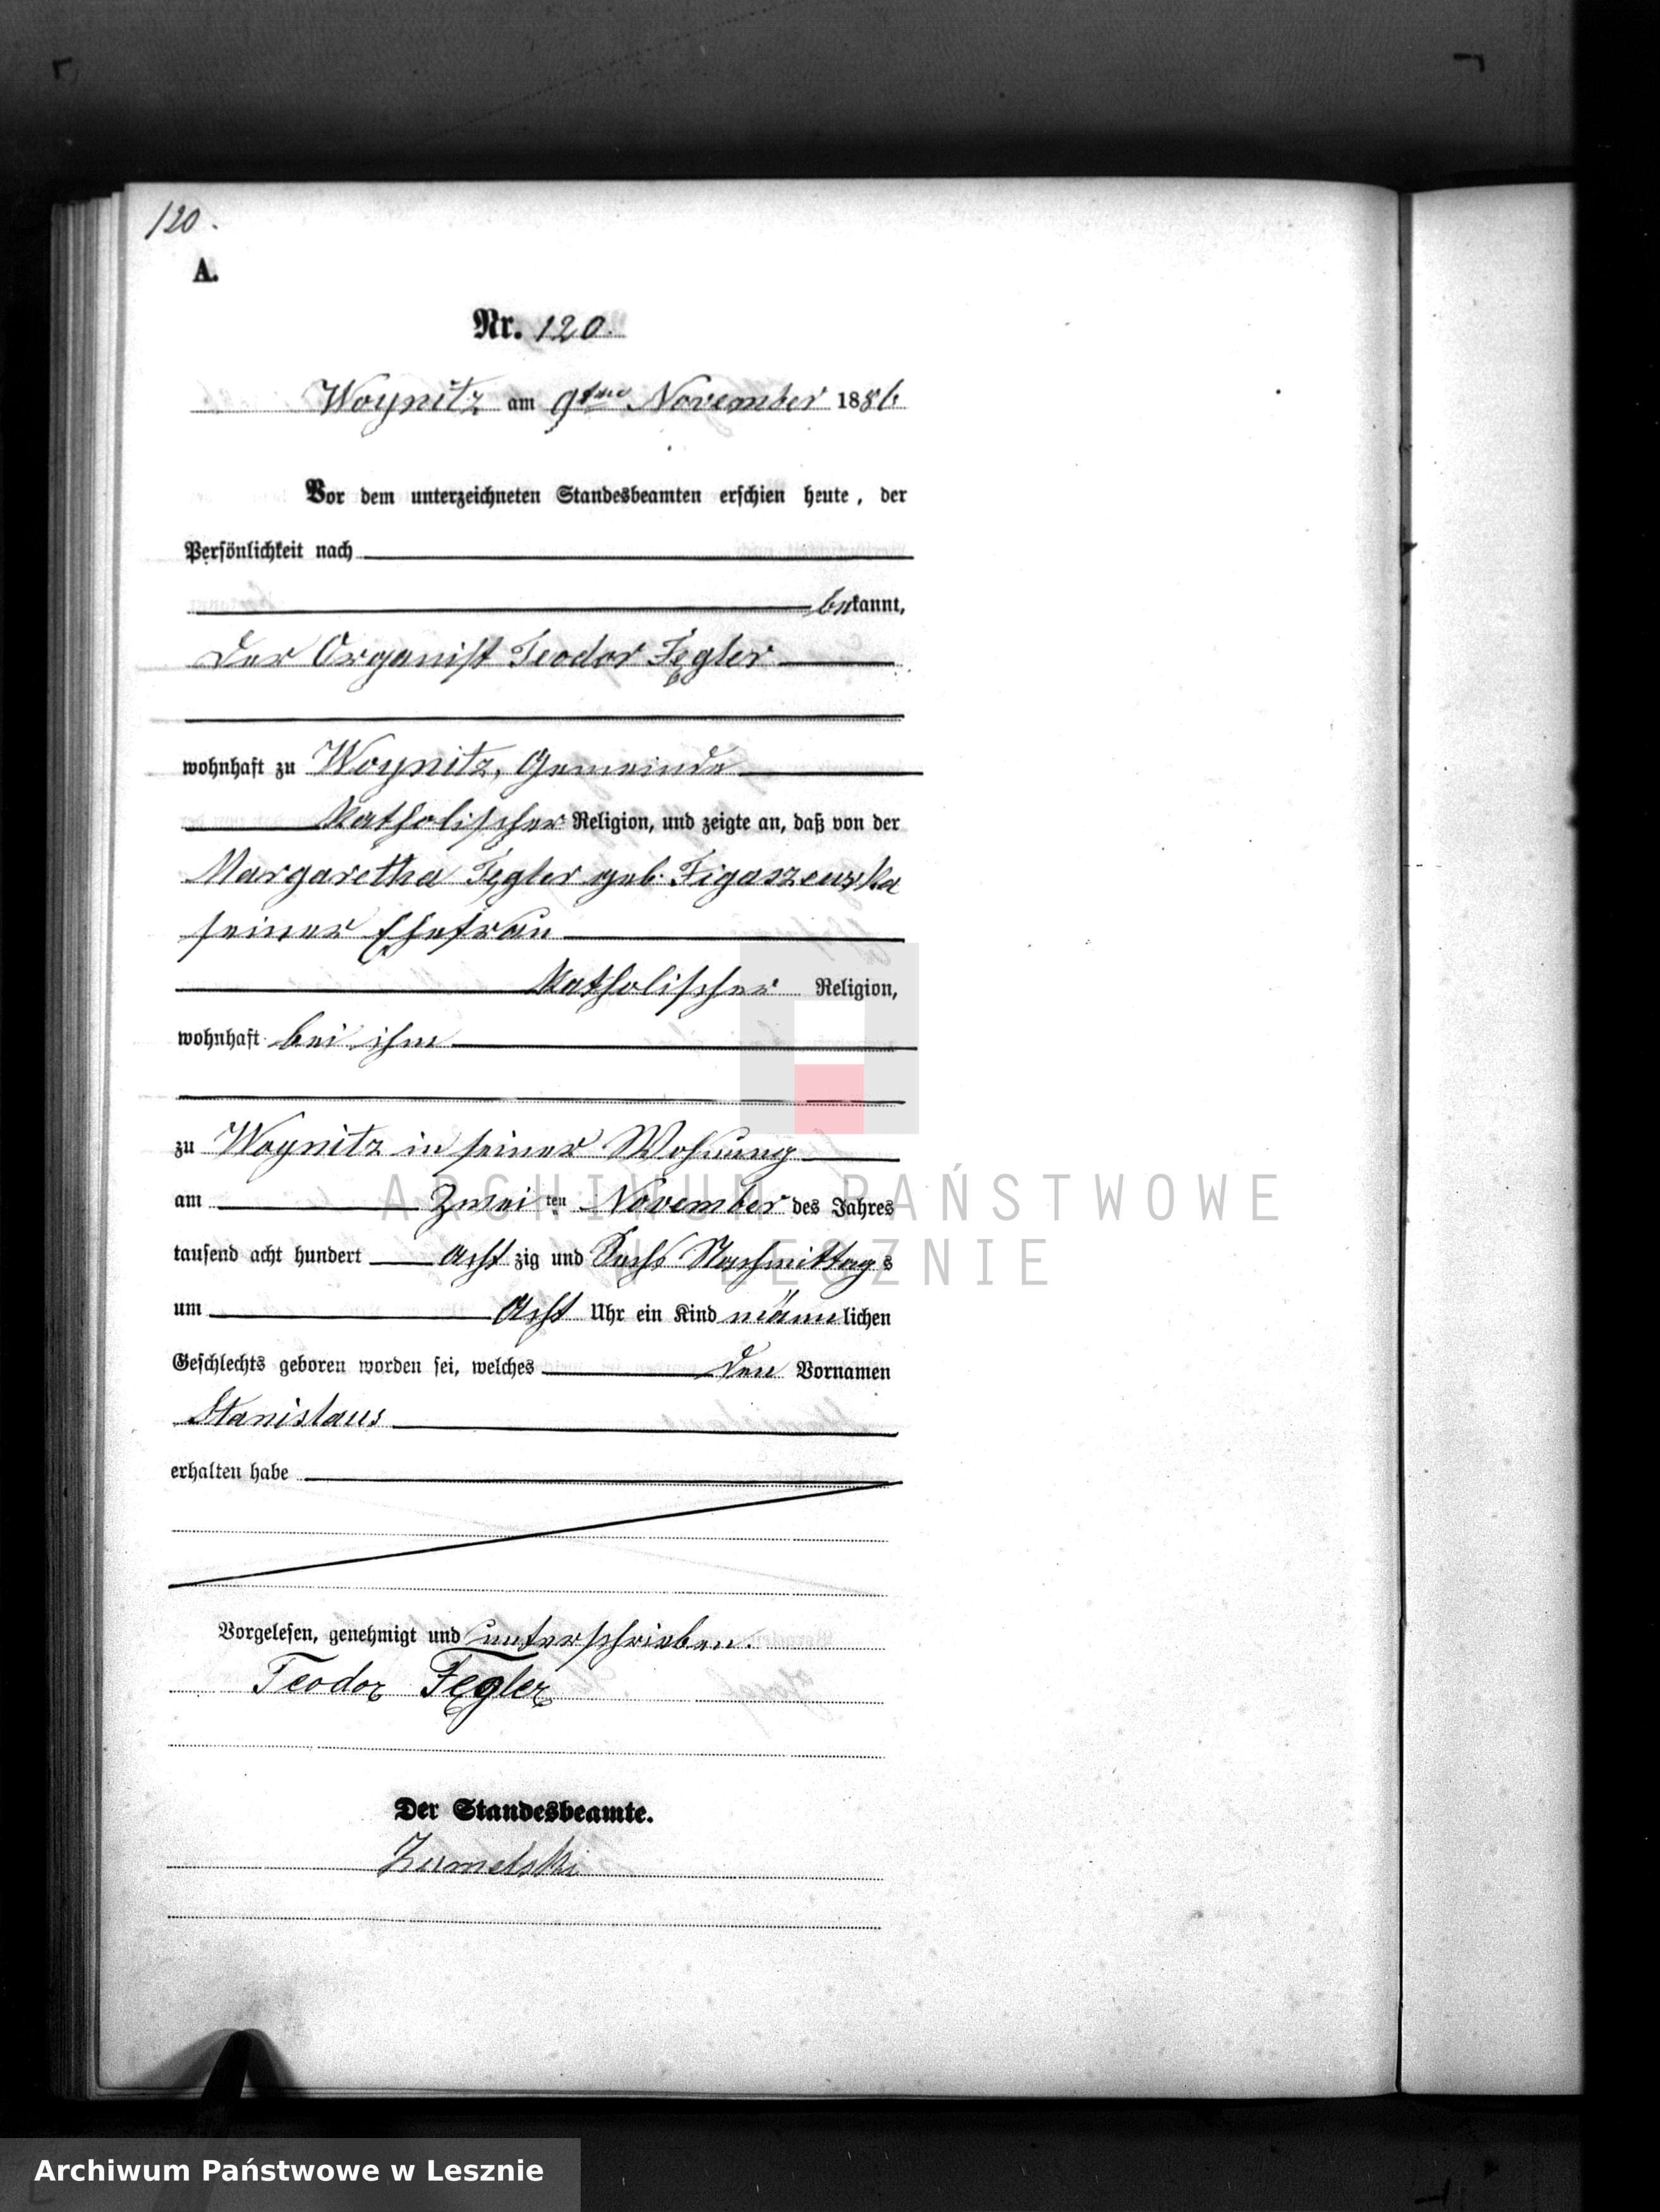 120.
A.
Nr. 120.
Woynitz am 9ten November 1886
Vor dem unterzeichneten Standesbeamten erschien heute, der
Persönlichkeit nach
bekannt,
der Organist Teodor Fęgler
wohnhaft zu Woynitz, Gemeinde
katholischer Religion, und zeigte an, daß von der
Margaretha Fęgler geb. Figaszewska
seiner Ehefrau
katholischer Religion,
wohnhaft bei ihm
zu Woynitz in seiner Wohnung
am zweiten November des Jahres
tausend acht hundert achtzig und sechs Nachmittags
um acht Uhr ein Kind männlichen
Geschlechts geboren worden sei, welches den Vornamen
Stanislaus
erhalten habe
Vorgelesen, genehmigt und unterschrieben.
Teodor Fęgler
Der Standesbeamte.
ARCHIWUM PAŃSTWOWE
W LESZNIE
Archiwum Państwowe w Lesznie